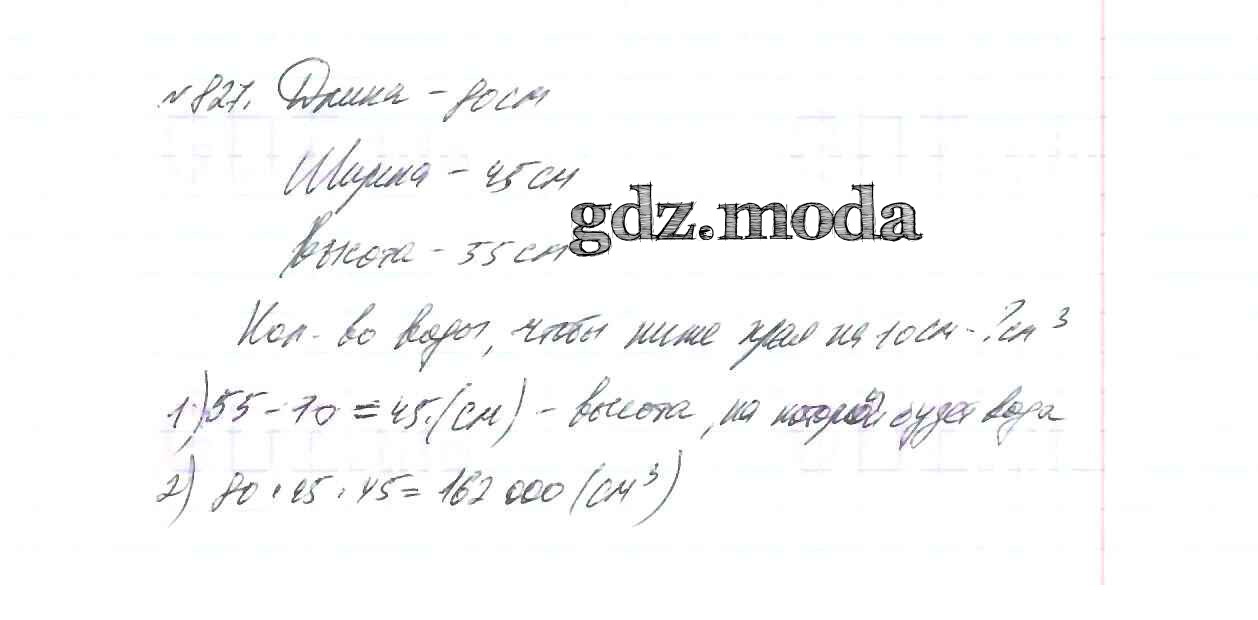 №827. Длина - 80 см
Ширина - 45 см
gdz.moda
Высота - 55 см
Кол-во воды, чтобы ниже края на 10 см - ? см³
1) 55 - 10 = 45 (см) - высота, на которой будет вода
2) 80 · 45 · 45 = 162 000 (см³)